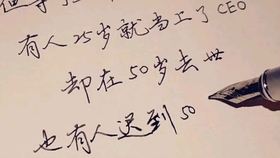 有人25岁就当上了CEO
却在50岁去世
也有人迟到50